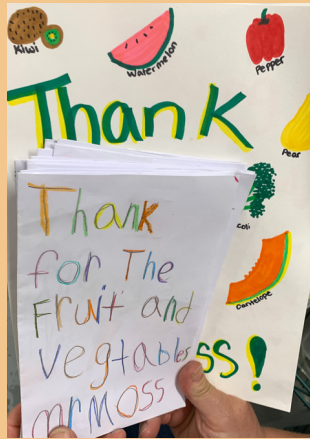 Kiwi
Watermelon
Pepper
Thank
Pear
coli
Cantelope
ss!
Thank
for The
Fruit and
vegtables
mrmoss